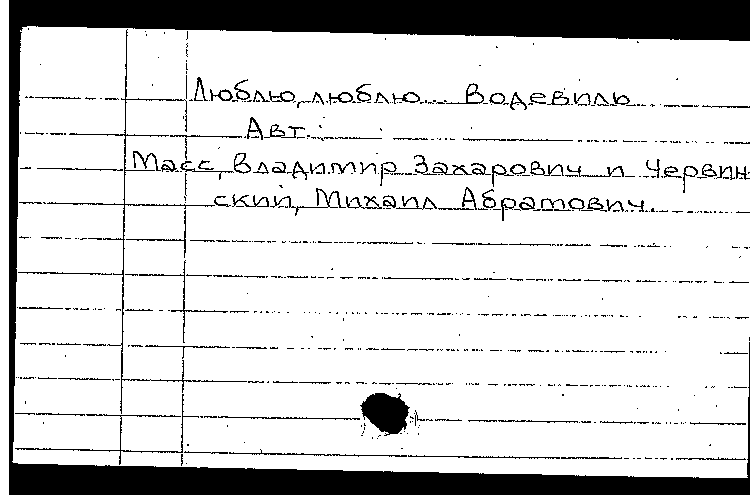 Люблю, люблю... Водевиль
Авт.:
Масс, Владимир Захарович и Червин-
ский, Михаил Абрамович.